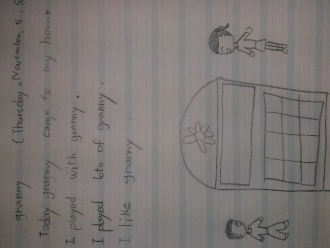 granny (Thursday, November, 5.
Today granny came to my home
I played with granny.
I played lots of granny.
I like granny